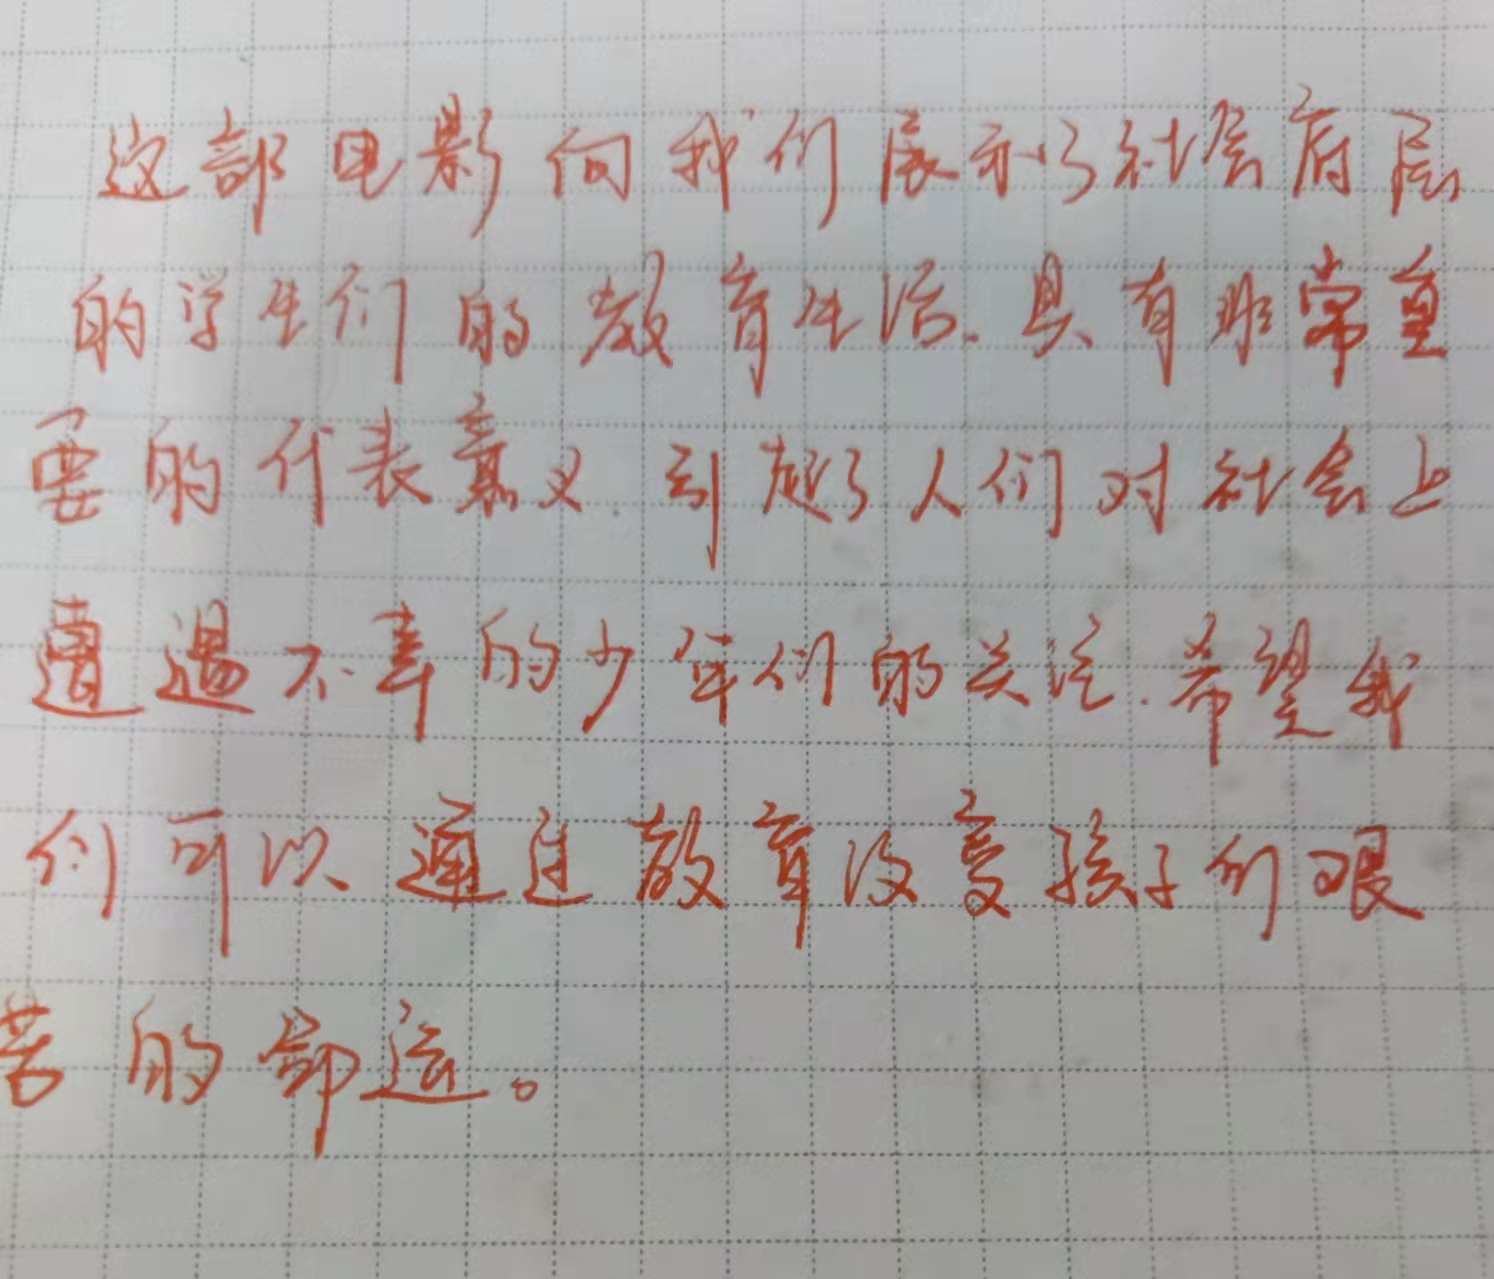 这部电影向我们展示了社会底层
的学生们的教育生活.具有非常重
要的代表意义.引起了人们对社会上
遭遇不幸的少年们的关注.希望我
们可以通过教育改变孩子们艰
苦的命运。